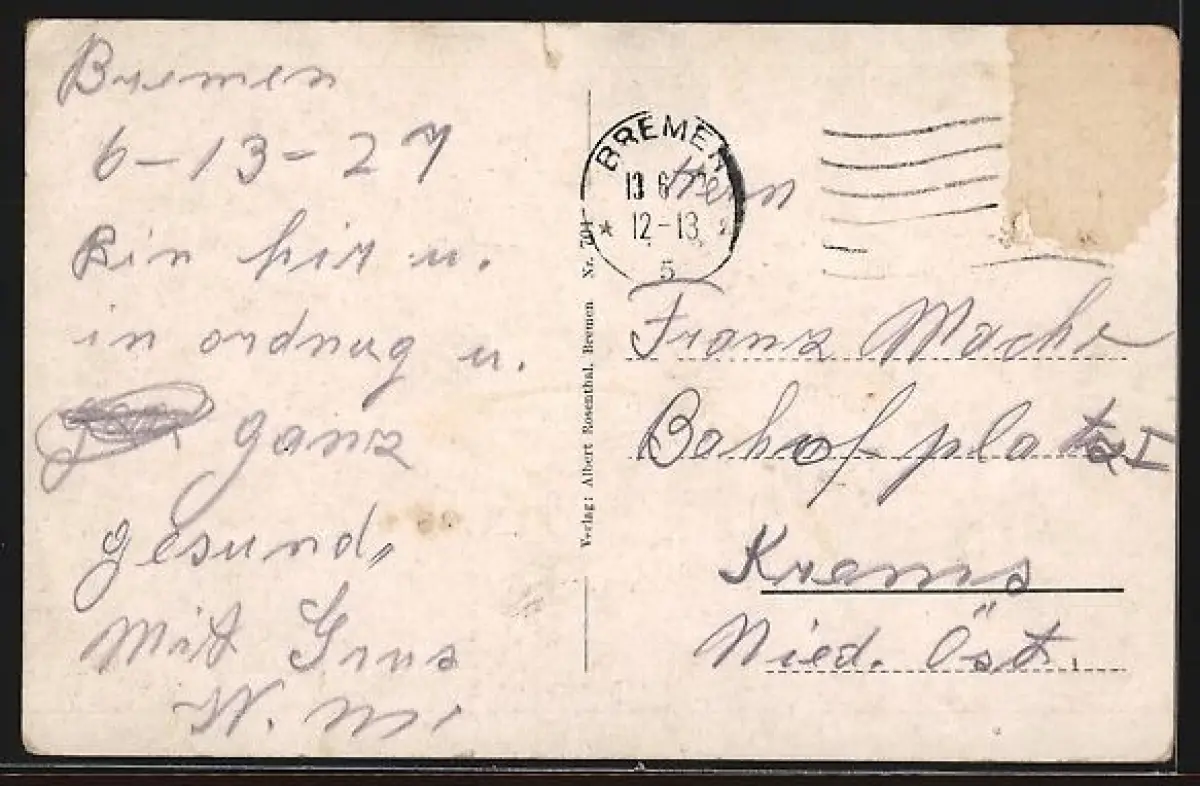 Bremen
6-13-27
Bin hir u.
in ordnug u.
ganz
gesund,
Mit Grus
W. M.
Verlag: Albert Rosenthal, Bremen Nr. 704
BREMEN
13 6
12-13
5
Herrn
Franz Mache
Bahofplatz 1
Krems
Nied. Öst.